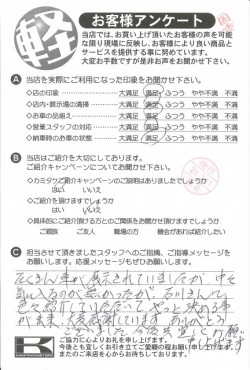 軽
お客様アンケート
当店では、お買い上げ頂いたお客様の声を可能
な限り現場に反映し、お客様により良い商品と
サービスを提供する事に努めています。
大変お手数ですが是非お声をお聞かせ下さい。
A 当店を実際にご利用になった印象をお聞かせ下さい。
◇店の印象 大満足 満足 ふつう やや不満 不満
◇店内・展示場の清掃 大満足 満足 ふつう やや不満 不満
◇お車の品揃え 大満足 満足 ふつう やや不満 不満
◇営業スタッフの対応 大満足 満足 ふつう やや不満 不満
◇納車時のお車の状態 大満足 満足 ふつう やや不満 不満
B 当店はご紹介を大切にしております。
ご紹介キャンペーンについてお聞かせ下さい。
◇カミタケご紹介キャンペーンのご説明はありましたでしょうか
はい いいえ
◇ご紹介を頂けますでしょうか
はい いいえ
◇具体的にご紹介頂ける方とのご関係をお聞かせ頂けますでしょうか
ご親族 ご友人 職場の方 機会があれば紹介したい
C 担当させて頂きましたスタッフへのご指摘、ご指導メッセージを
お願いします。応援メッセージもぜひお願いします。
たくさん車が展示されていましたが 中々
気に入るのが
色々
が出来、大変感謝しています。ありがとう
ございました。
ご協力に心よりお礼を申し上げます。
今後とも宜しくお引き立てご愛顧の程お願い申し上げます。
またのご来店を心からお待ちしております。